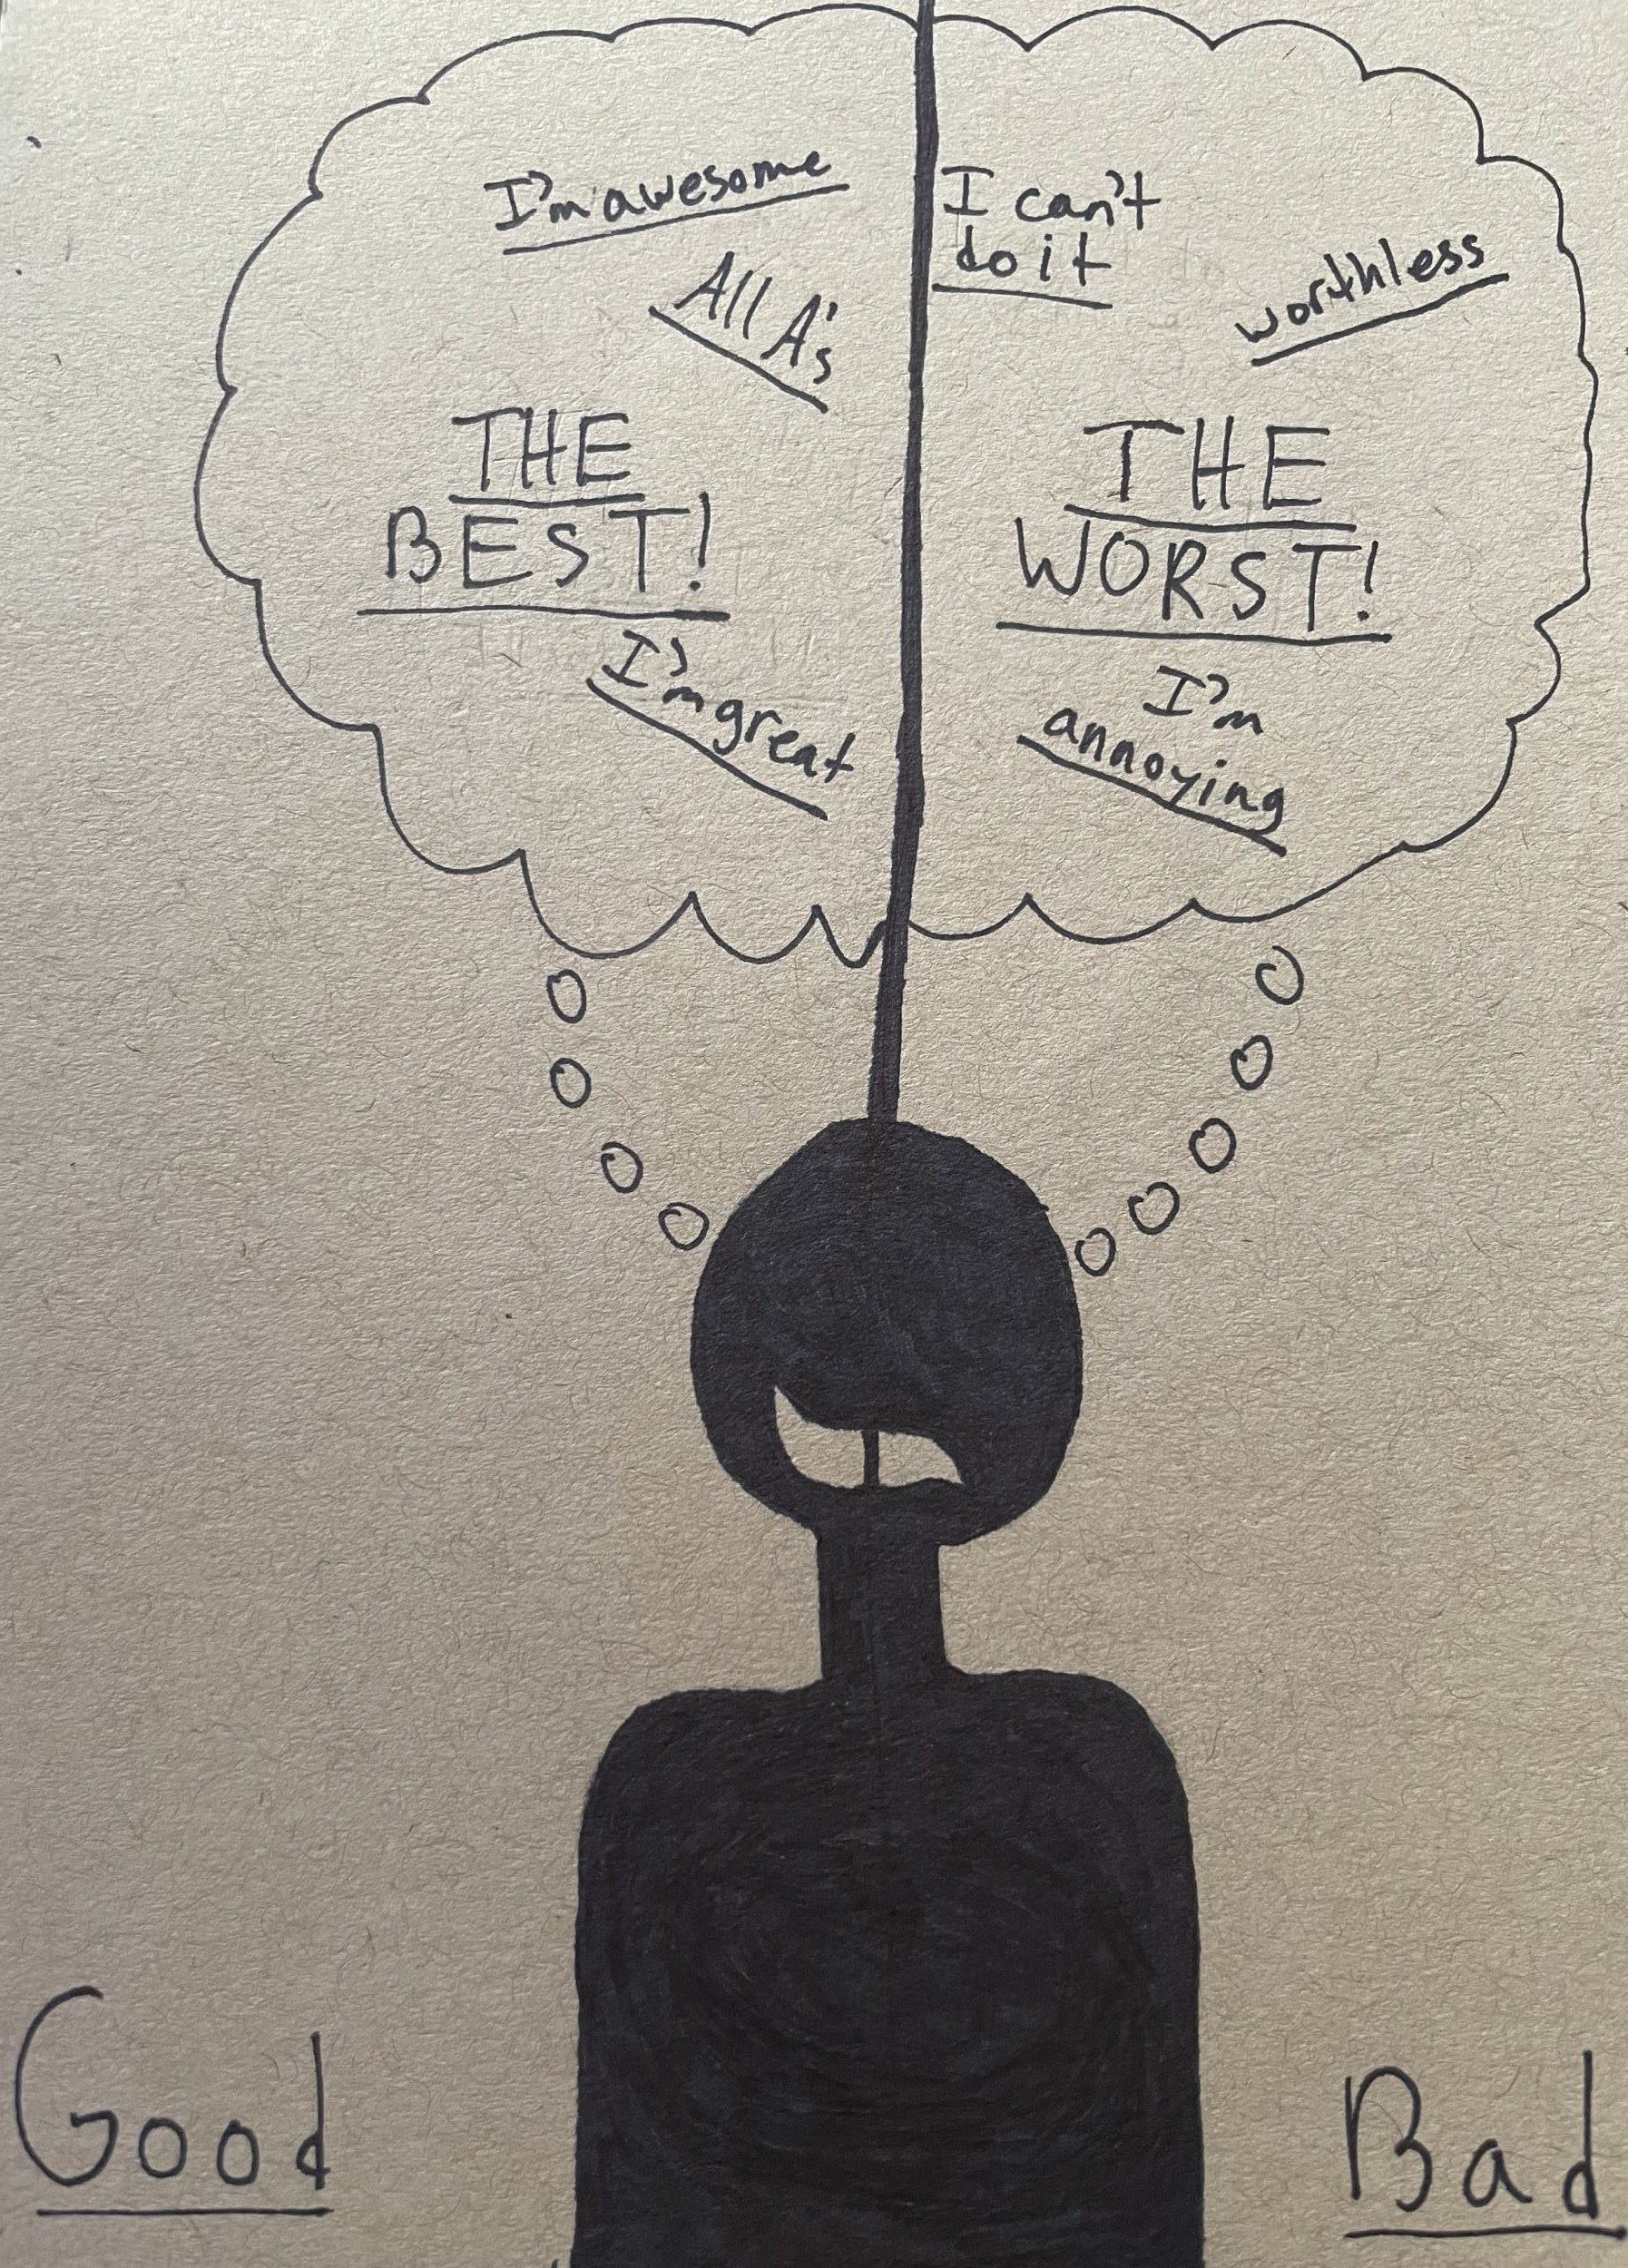 I'm awesome
All A's
THE
BEST!
I'm great
I can't
do it
worthless
THE
WORST!
I'm
annoying
Good
Bad